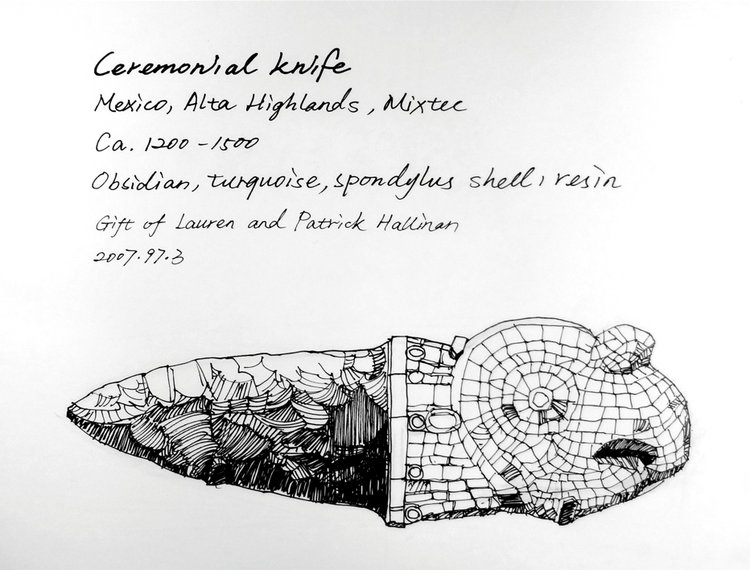 Ceremonial knife
Mexico, Alta Highlands, Mixtec
Ca. 1200-1500
Obsidian, turquoise, spondylus shell, resin
Gift of Lauren and Patrick Hallinan
2007.97.3